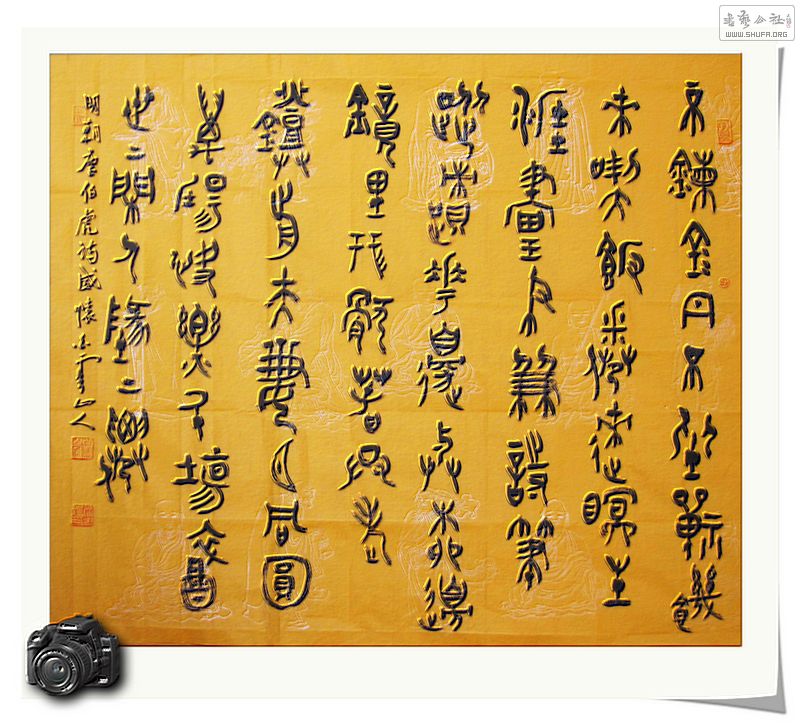 書藝公社
WWW.SHUFA.ORG
不鍊金丹不坐禪饑
來喫飯倦來眠生
涯畫筆兼詩筆
蹤跡花邊與柳邊
鏡里形骸春共老
燈前夫婦月同圓
萬場快樂千場醉
世上閑人地上僊
明朝唐伯虎詩感懷 雲山人